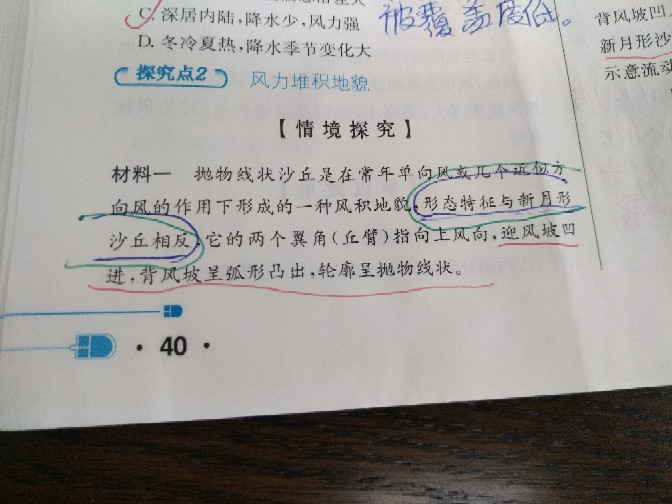 C. 深居内陆,降水少,风力强
被覆盖度低。
D. 冬冷夏热,降水季节变化大
探究点2 风力堆积地貌
【情境探究】
材料一 抛物线状沙丘是在常年单向风或几个近似方
向风的作用下形成的一种风积地貌,形态特征与新月形
沙丘相反,它的两个翼角(丘臂)指向上风向,迎风坡凹
进,背风坡呈弧形凸出,轮廓呈抛物线状。
·40·
背风坡凹
新月形沙
示意流动